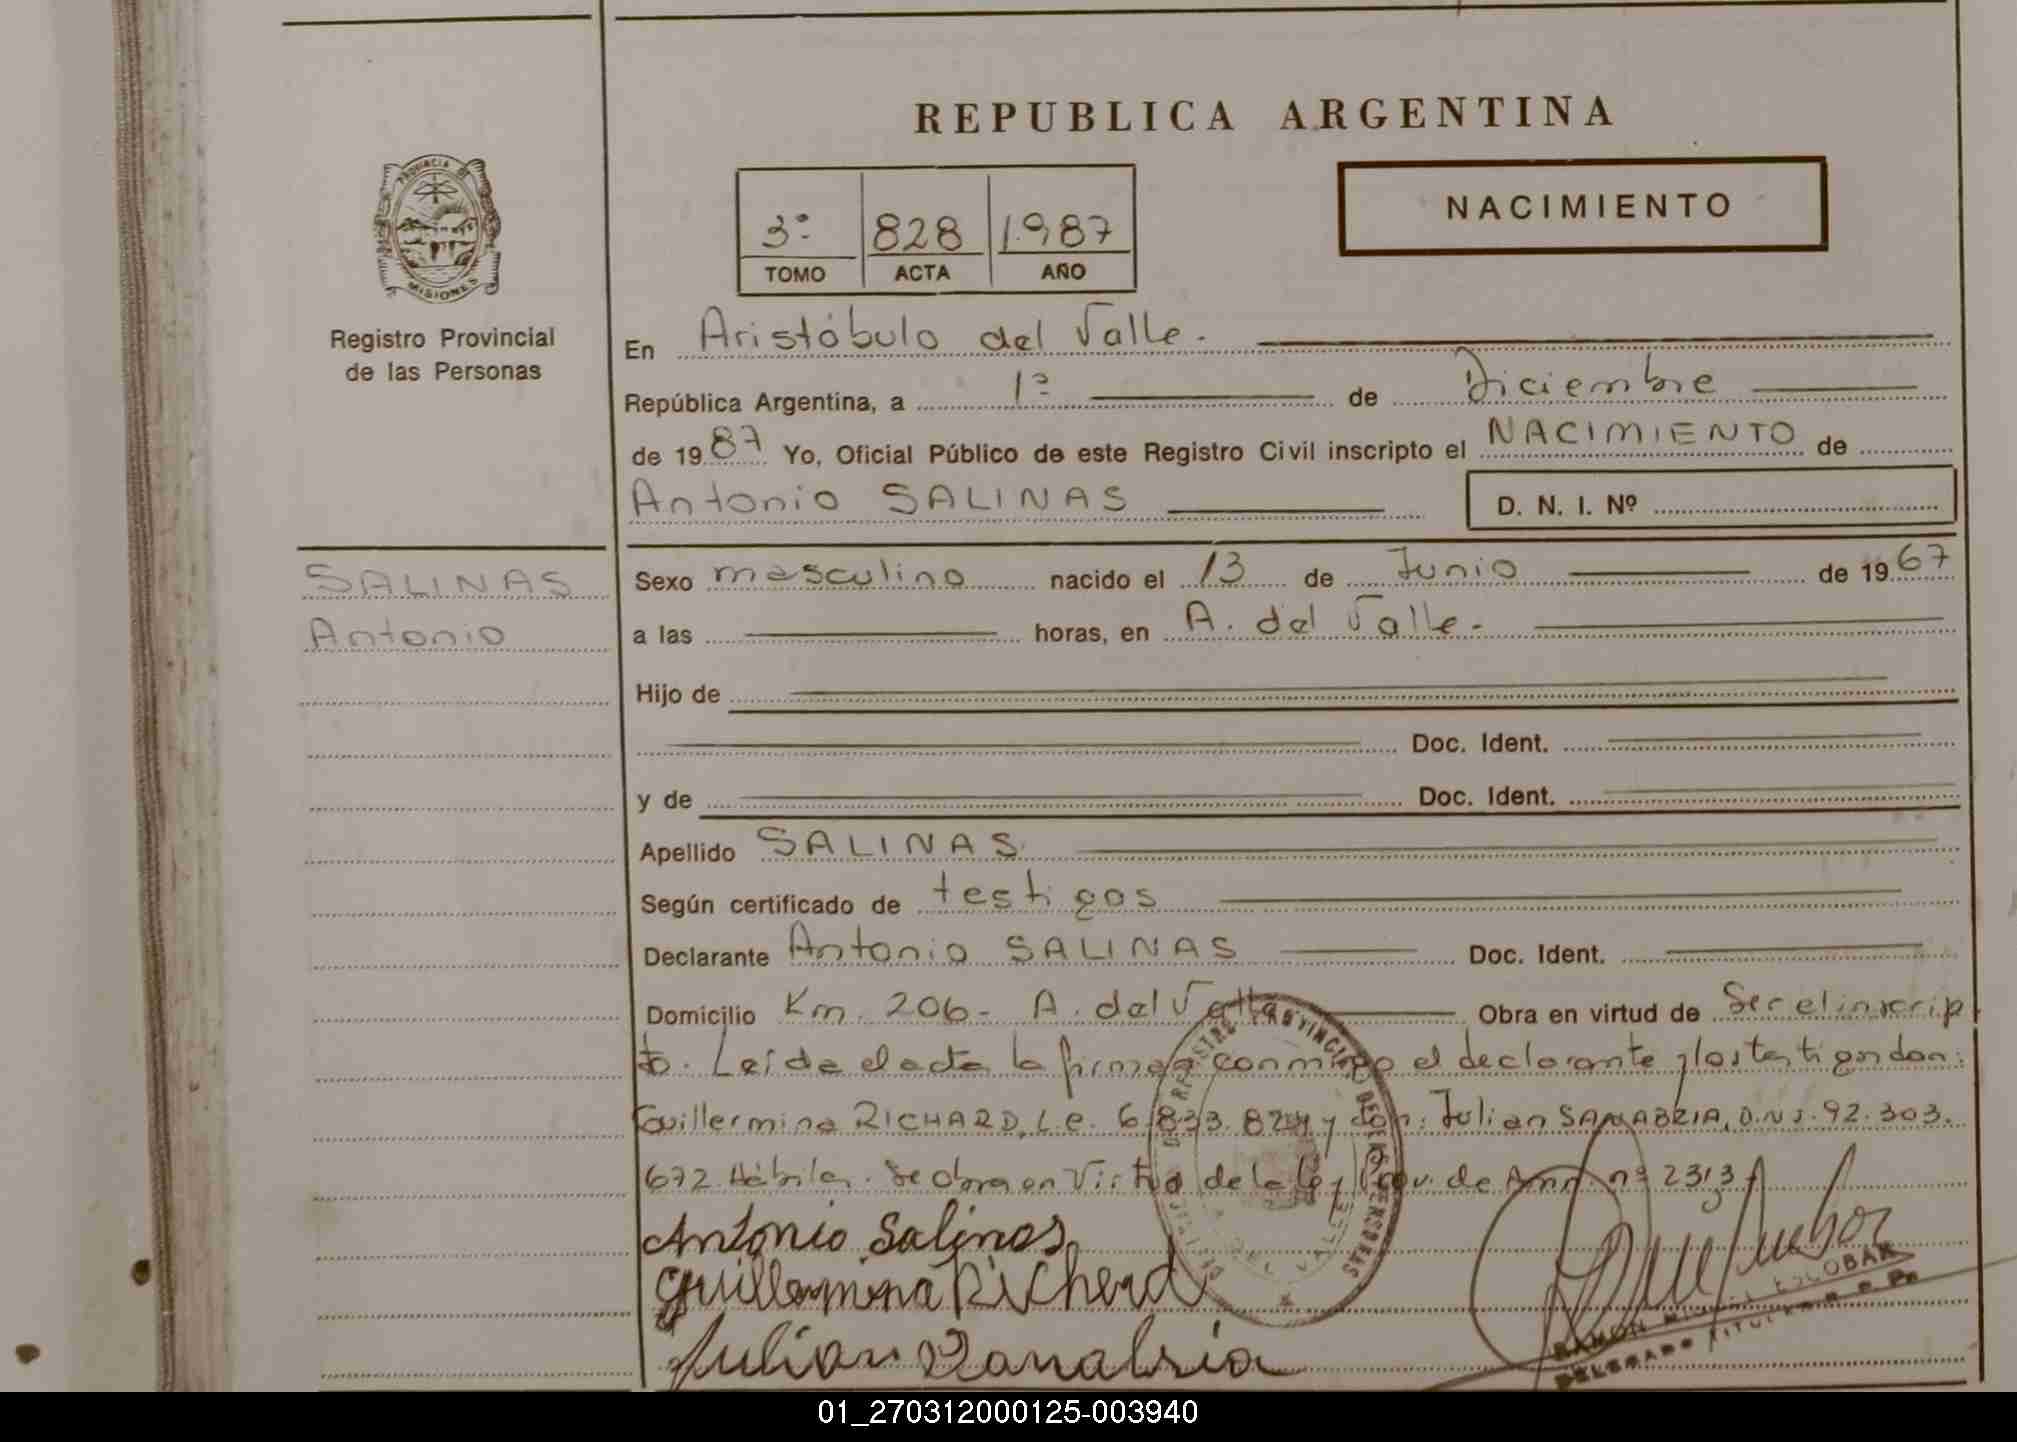 REPUBLICA ARGENTINA
PROVINCIA DE
MISIONES
Registro Provincial
de las Personas
3º 828 1.987
TOMO ACTA AÑO
NACIMIENTO
En Aristóbulo del Valle.
República Argentina, a 1º de Diciembre
de 1987 Yo, Oficial Público de este Registro Civil inscripto el NACIMIENTO de
Antonio SALINAS D. N. I. Nº
SALINAS
Antonio
Sexo masculino nacido el 13 de Junio de 1967
a las horas, en A. del Valle.-
Hijo de
Doc. Ident.
y de Doc. Ident.
Apellido SALINAS
Según certificado de testigos
Declarante Antonio SALINAS Doc. Ident.
Domicilio Km. 206- A. del Valle Obra en virtud de Ser el inscrip
to. Leída el acta la firman conmigo el declarante y los testigos don:
Guillermina RICHARD, L.e. 6.833.824 y don: Julian SANABRIA, D.N.I. 92.303.
672 Hábiles. Se obra en Virtud de la Ley Prov. de Amn. nº 2313
Antonio Salinas
Guillermina Richerd
Julian Sanabria
RAMON MIGUEL ESCOBAR
DELEGADO TITULAR
01_270312000125-003940